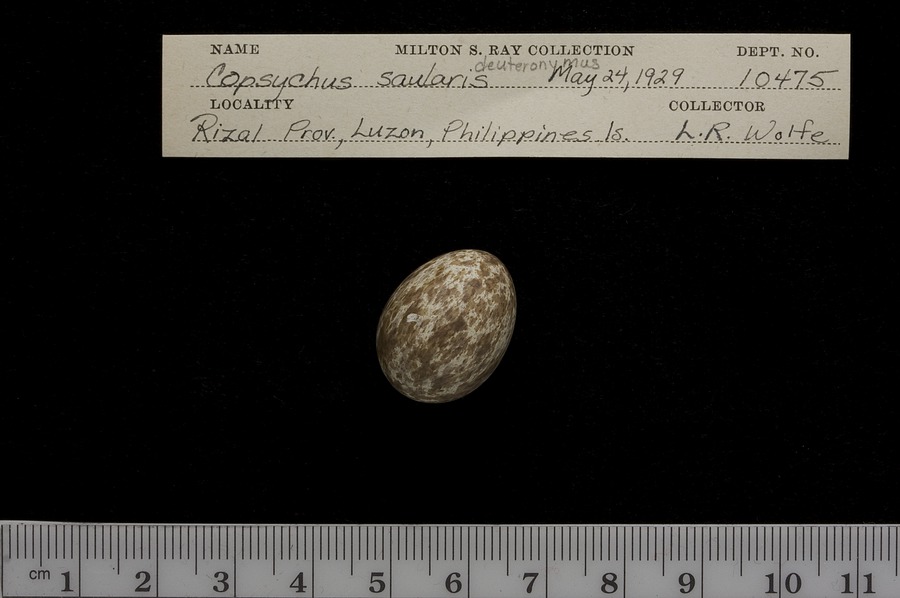 NAME MILTON S. RAY COLLECTION DEPT. NO.
deuteronymus
Copsychus saularis May 24, 1929 10475
LOCALITY COLLECTOR
Rizal Prov., Luzon, Philippines Is. L.R. Wolfe
cm 1 2 3 4 5 6 7 8 9 10 11